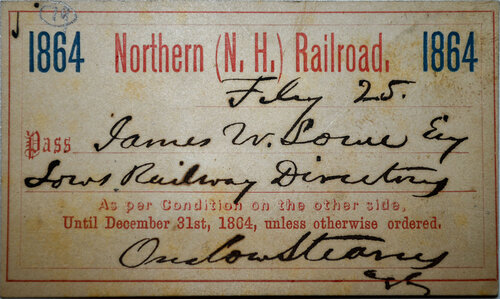 1864 Northern (N. H.) Railroad. 1864
Feby 25.
Pass James W. Lowe Esq
Lows Railway Directory
As per Condition on the other side,
Until December 31st, 1864, unless otherwise ordered.
Onslow Stearns
agt